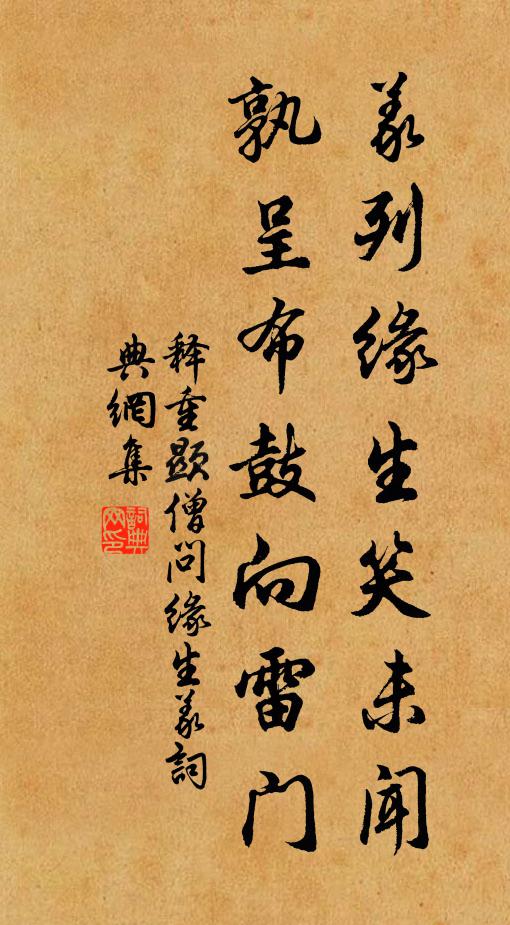 义列缘生笑未闻
孰呈布鼓向雷门
释重显僧问缘生义詞
典網集
詞典